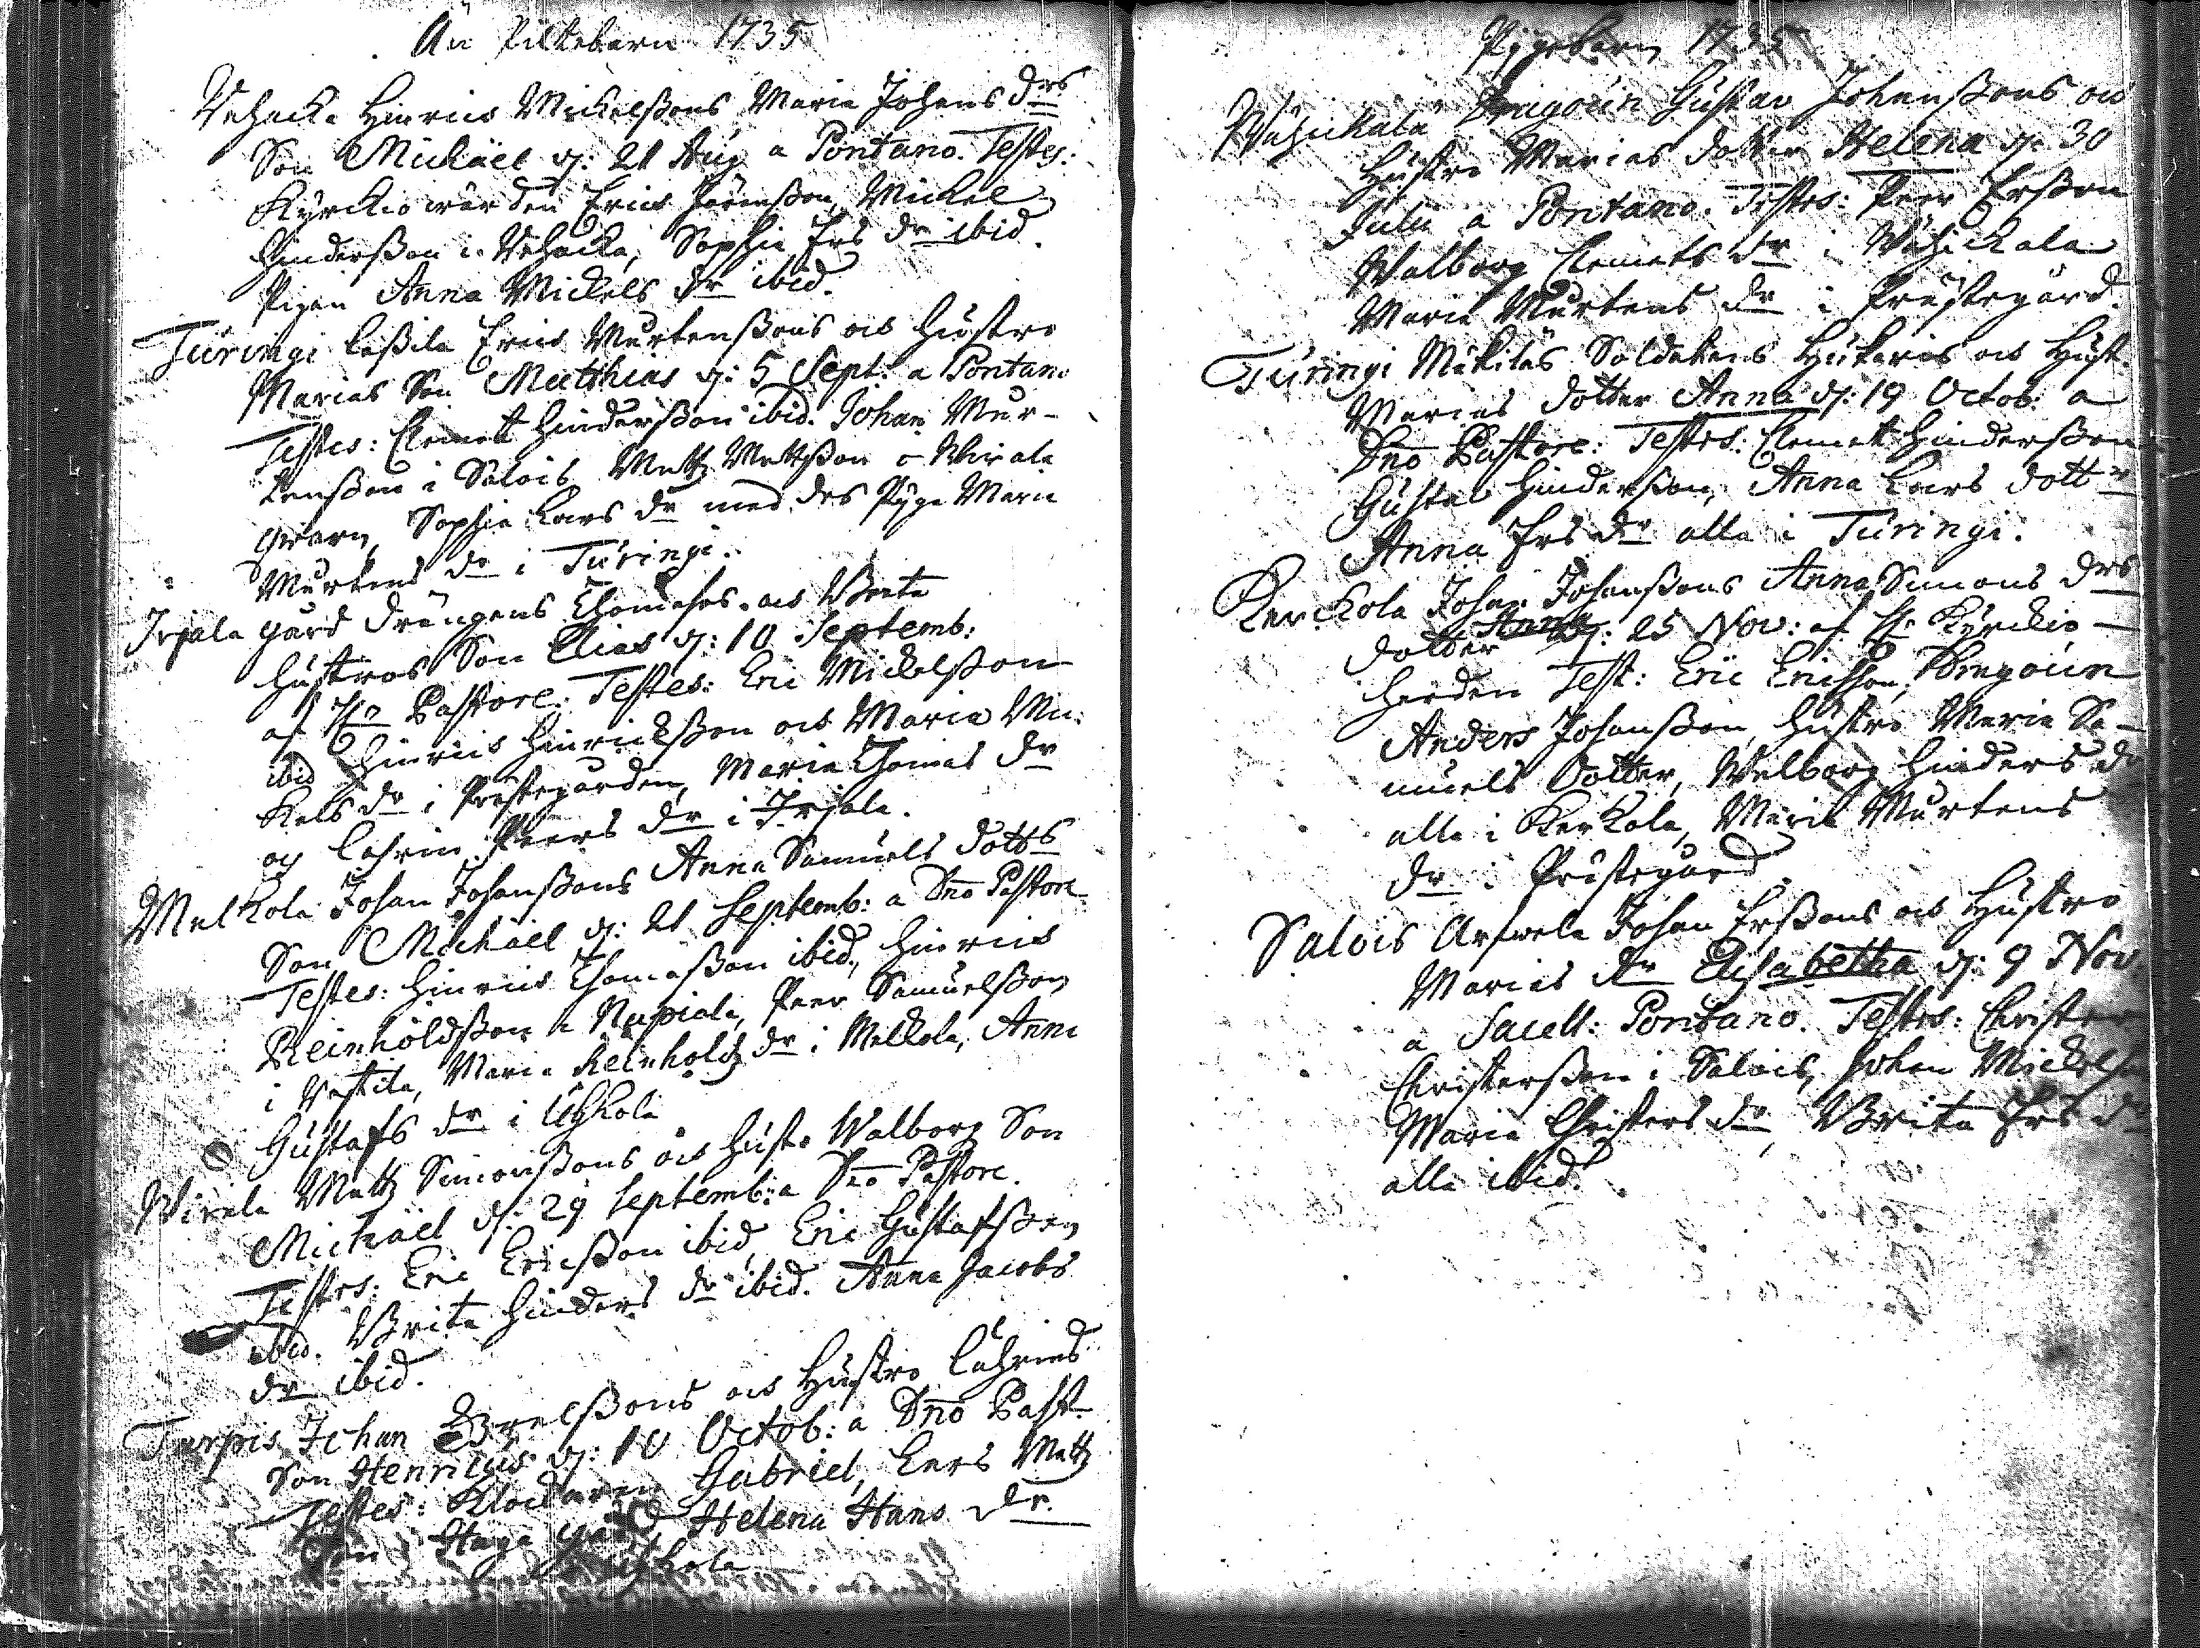 An Piltebarn 1735
Vehacka Hinrics Mickelßons Maria Johans drs
Son Michäel d: 21 Aug a Pontano. Testes:
Kyrckiowärden Eric Mickel
Hinderßon i Vehacka, Sophia Ers dr ibid.
Pigan Anna Mickels dr ibid.
Turingi Caßila Erics Mårtenßons os hustro
Marias Son Matthias d: 5 Sept. a Pontano
Testes: Clemet Hinderßon ibid. Johan Mår-
tenßon i Salois Matz Mattßon i Wirala
qvarn, Sophia Lars dr med des Pyga Maria
Mårtens dr i Turingi.
Irjala gård drängens Thomases os Brita
hustros Son Elias d: 10 Septemb:
af H. Pastore. Testes: Eric Mickelßon
ibid Hinric Hinrickßon os Maria Mi-
kels dr i Prästegården, Maria Thomas dr
og Cahrin Peers dr i Irjala.
Melkola Johan Johanßons Anna Samuels dotts
Son Michäel d: 21 Septemb: a Dno Pastore
Testes: Hinric Thomaßon ibid., Hinric
Reinholdßon i Nupiala, Peer Samuelßon
i Vestila, Maria Reinholdz dr i Melkola, Anna
Gustafs dr i Uhkola
Wirala Matz Simonßons os hustr Walborg Son
Michäel d: 29 Septemb: a Dno Pastore.
Testes: Eric Ericßon ibid, Eric Gustafßon
ibid. Brita Hinders dr ibid. Anna Jacobs
dr ibid.
Turpis Johan os Hustro Cahrins
Son Henricus d: 10 Octob: a Dno Past.
Testes: Klockaren Gabriel, Lars Matz
Son i Haga gård Helena Hans dr.
Pygebarn 1735
Wähickala Dragoun Gustav Johanßons os
Hustro Marias dotter Helena d: 30
Julii a Pontano. Testes: Peer Erßon
Walborg Clemets dr i Wähickala
Maria Mårtens dr i Prästegård.
Turingi Mäkiläs Soldatens os Hust.
Marias dotter Anna d: 19 Octob: a
Dno Pastore: Testes: Clemet Hinderßon
Gustav Hinderßon, Anna Lars dottr
Anna Ers dr alla i Turingi.
Kerkola Johan Johanßons Anna Simons drs
dotter Anna d: 25 Nov: af H. Kyrckio-
herden Test: Eric Ericßon, Dragoun
Anders Johanßon, Hustro Maria Sa-
muels Dotter, Walborg Hinders dr
alla i Kerkola, Maria Mårtens
dr i Prästegård.
Salois Arwela Johan Erßons os Hustro
Marias dr Elisabetha d: 9 Nov
a Sacell: Pontano. Testes: Christer
Christerßon i Salois, Johan Mickelß
Maria Christers dr, Brita Ers dr
alla ibid.